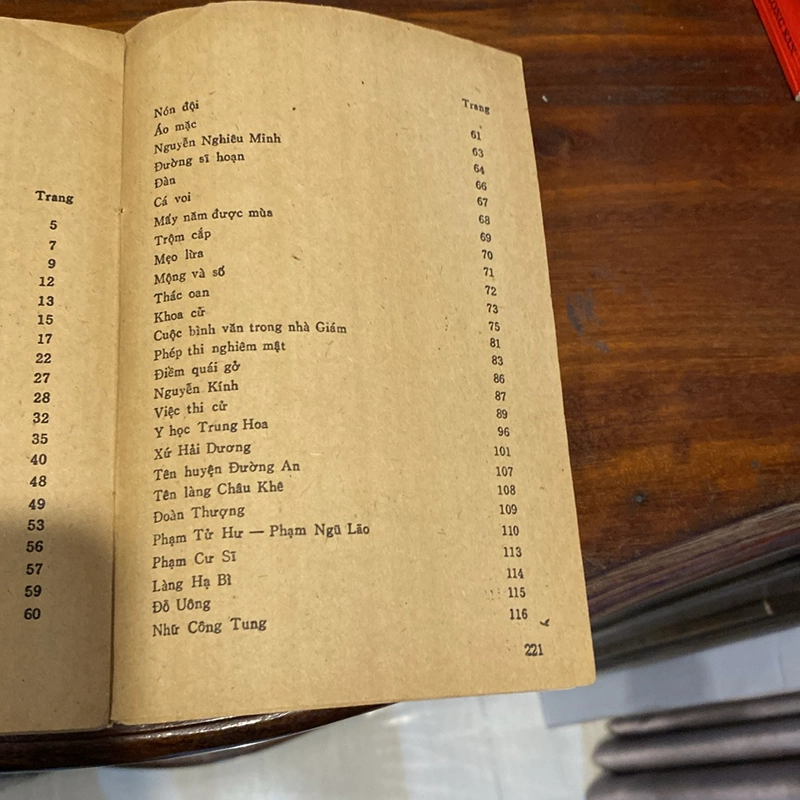 Trang
5
7
9
12
13
15
17
22
27
28
32
35
40
48
49
53
56
57
59
60
Trang
Nón đội 61
Áo mặc 63
Nguyễn Nghiêu Minh 64
Đường sĩ hoạn 66
Đàn 67
Cá voi 68
Mấy năm được mùa 69
Trộm cắp 70
Mẹo lừa 71
Mộng và số 72
Thác oan 73
Khoa cử 75
Cuộc bình văn trong nhà Giám 81
Phép thi nghiêm mật 83
Điềm quái gở 86
Nguyễn Kính 87
Việc thi cử 89
Y học Trung Hoa 96
Xứ Hải Dương 101
Tên huyện Đường An 107
Tên làng Châu Khê 108
Đoàn Thượng 109
Phạm Tử Hư — Phạm Ngũ Lão 110
Phạm Cư Sĩ 113
Làng Hạ Bì 114
Đỗ Uông 115
Nhữ Công Tung 116
221